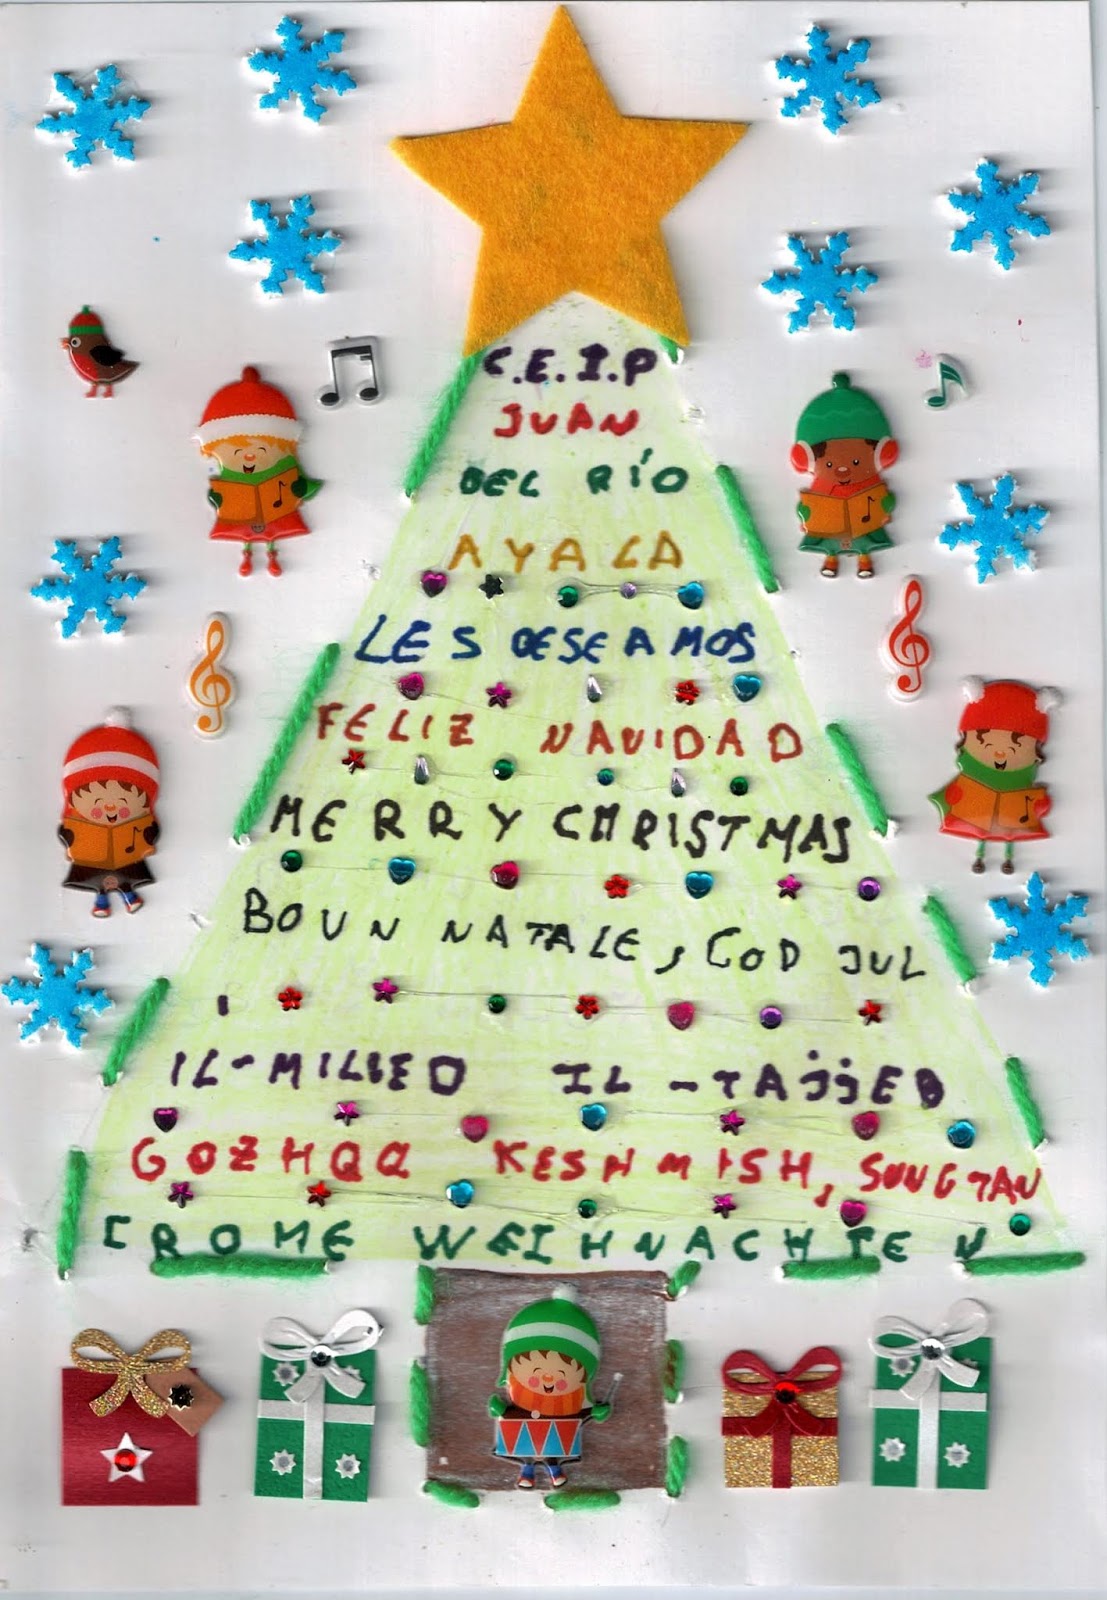 C.E.I.P
JUAN
DEL RÍO
AYALA
LES DESEAMOS
FELIZ NAVIDAD
MERRY CHRISTMAS
BOUN NATALE, GOD JUL
IL-MILIED IL-TAJJEB
GOZHQQ KESHMISH, SUNGTAN
CROHE WEIHNACHTEN